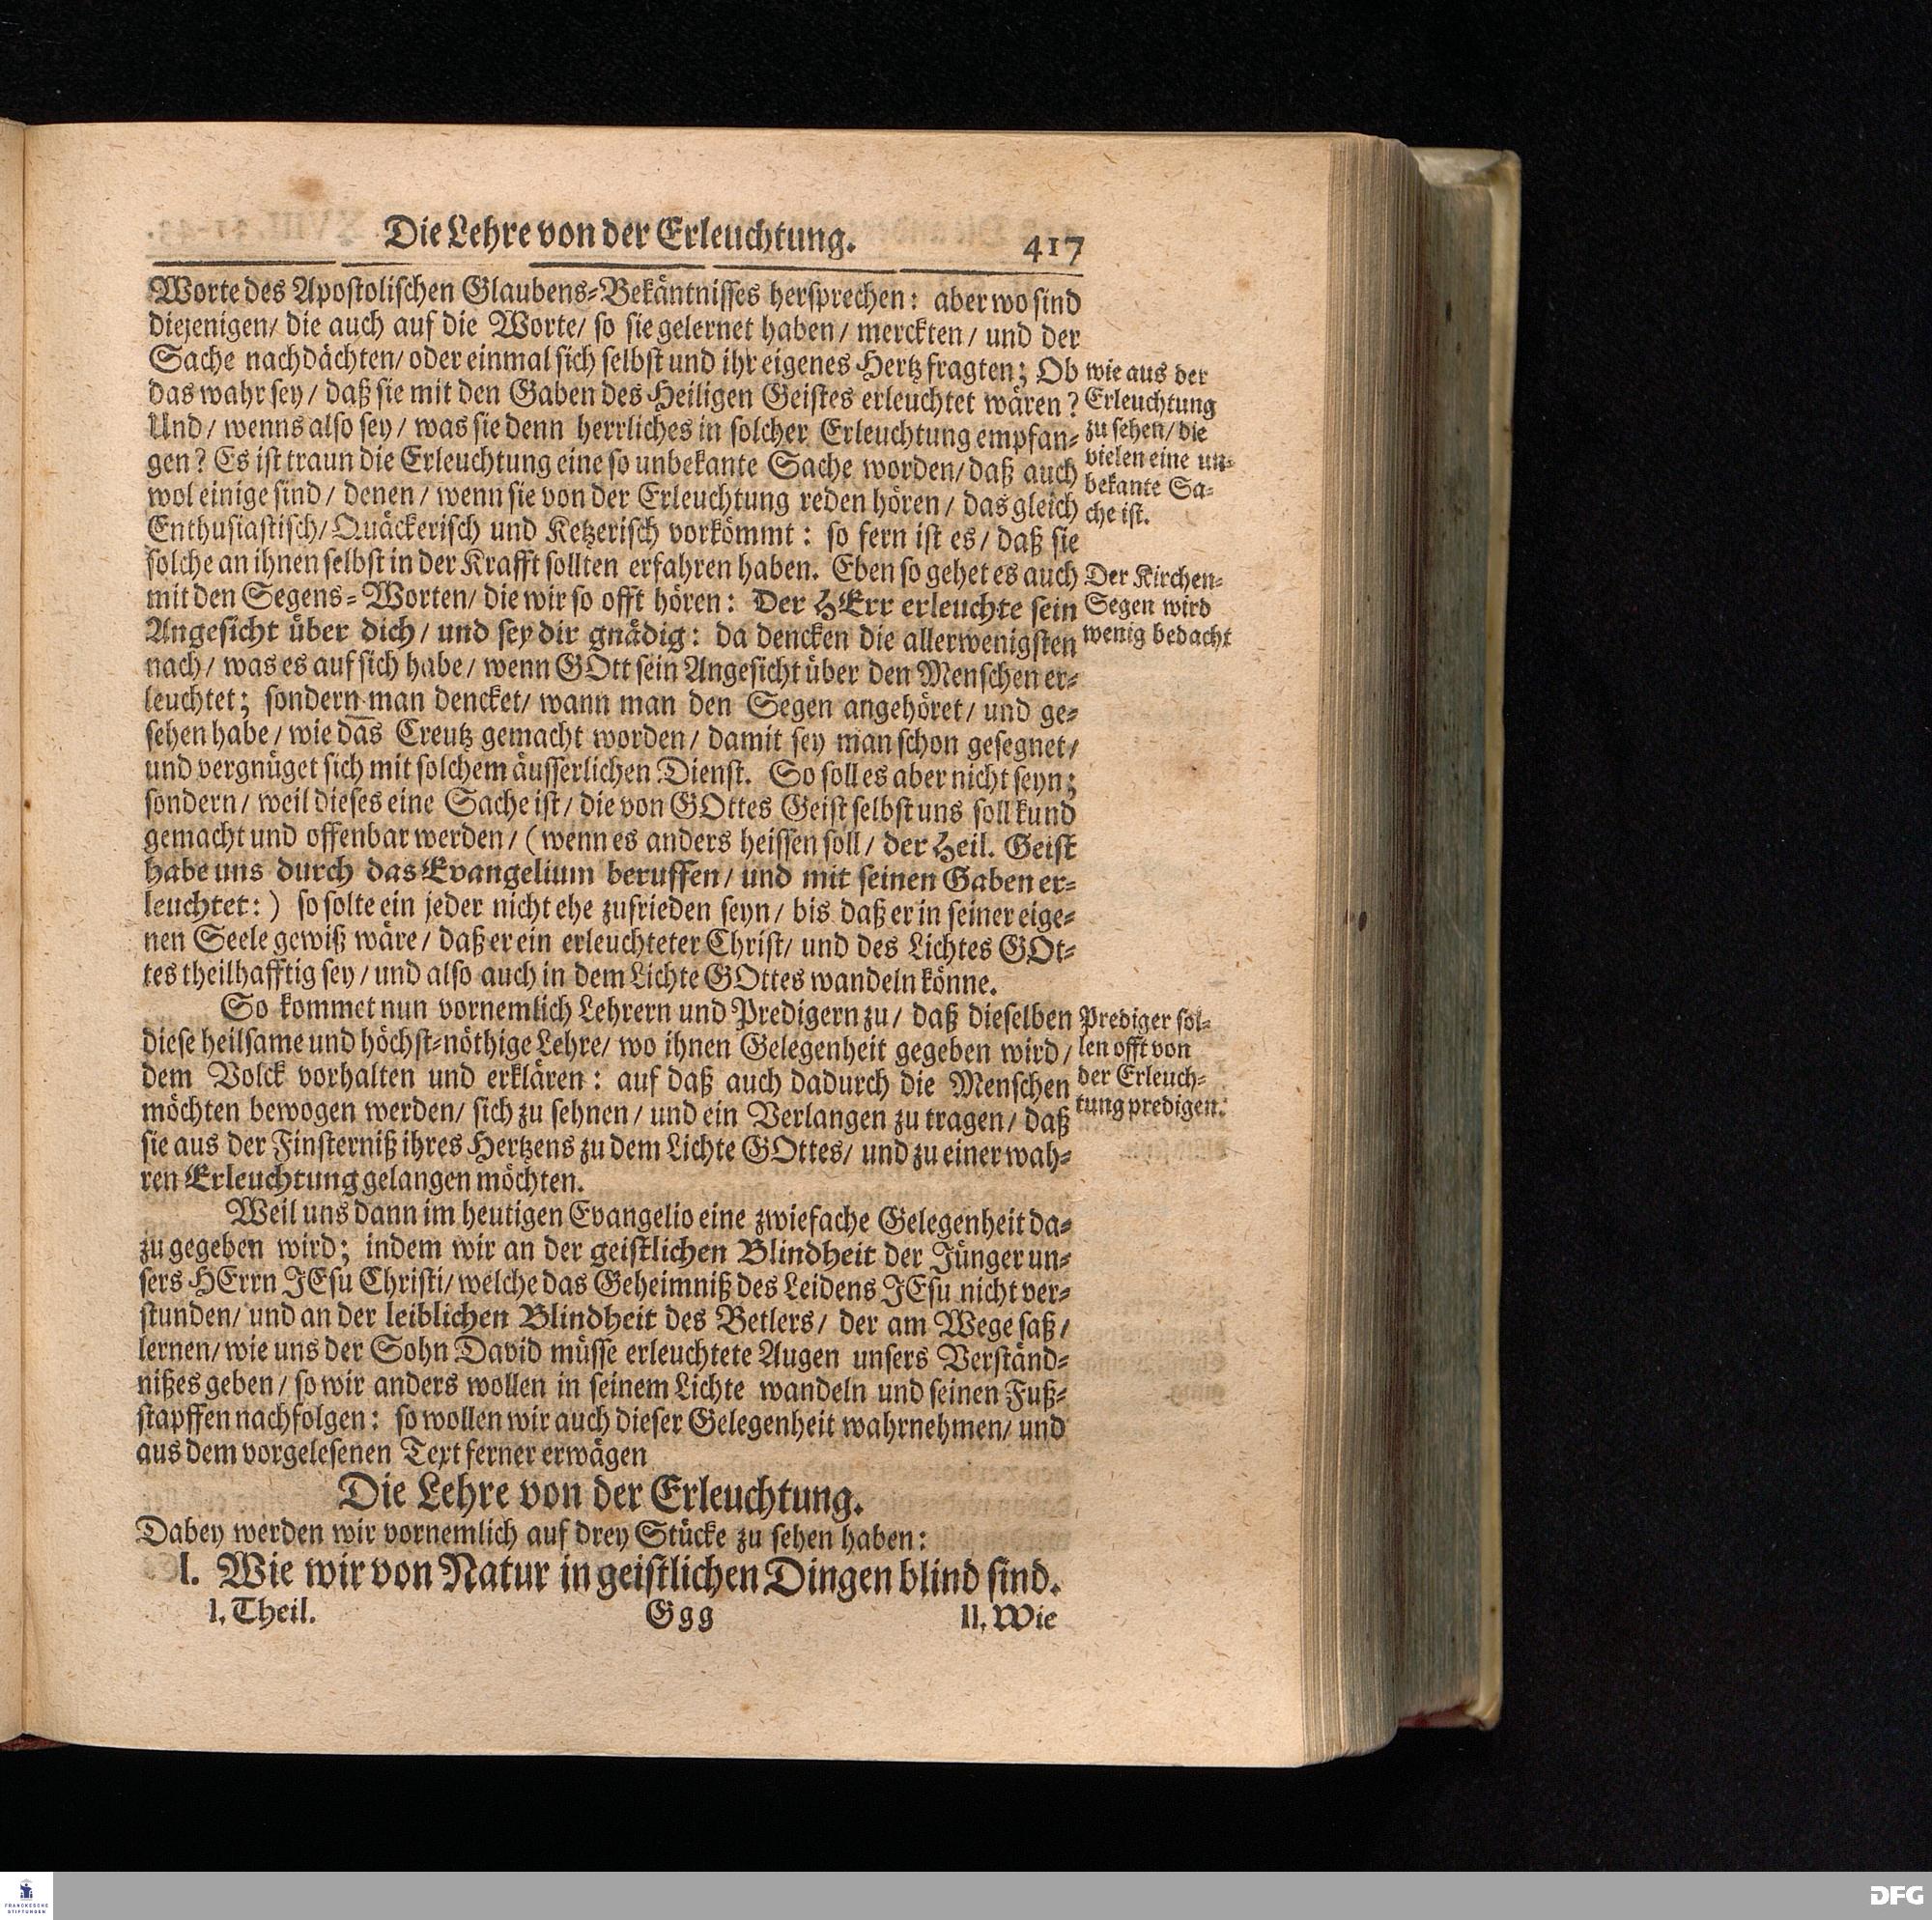 Die Lehre von der Erleuchtung. 417
Worte des Apostolischen Glaubens-Bekäntnisses hersprechen: aber wo sind
diejenigen/ die auch auf die Worte/ so sie gelernet haben/ merckten/ und der
Sache nachdächten/ oder einmal sich selbst und ihr eigenes Hertz fragten; Ob
das wahr sey/ daß sie mit den Gaben des Heiligen Geistes erleuchtet wären?
Und/ wenns also sey/ was sie denn herrliches in solcher Erleuchtung empfan-
gen? Es ist traun die Erleuchtung eine so unbekante Sache worden/ daß auch
wol einige sind/ denen/ wenn sie von der Erleuchtung reden hören/ das gleich
Enthusiastisch/ Quäckerisch und Ketzerisch vorkömmt: so fern ist es/ daß sie
solche an ihnen selbst in der Krafft sollten erfahren haben. Eben so gehet es auch
mit den Segens-Worten/ die wir so offt hören: Der HErr erleuchte sein
Angesicht über dich/ und sey dir gnädig: da dencken die allerwenigsten
nach/ was es auf sich habe/ wenn GOtt sein Angesicht über den Menschen er-
leuchtet; sondern man dencket/ wann man den Segen angehöret/ und ge-
sehen habe/ wie das Creutz gemacht worden/ damit sey man schon gesegnet/
und vergnüget sich mit solchem äusserlichen Dienst. So soll es aber nicht seyn;
sondern/ weil dieses eine Sache ist/ die von GOttes Geist selbst uns soll kund
gemacht und offenbar werden/ (wenn es anders heissen soll/ der Heil. Geist
habe uns durch das Evangelium beruffen/ und mit seinen Gaben er-
leuchtet:) so solte ein jeder nicht ehe zufrieden seyn/ bis daß er in seiner eige-
nen Seele gewiß wäre/ daß er ein erleuchteter Christ/ und des Lichtes GOt-
tes theilhafftig sey/ und also auch in dem Lichte GOttes wandeln könne.
So kommet nun vornemlich Lehrern und Predigern zu/ daß dieselben
diese heilsame und höchst-nöthige Lehre/ wo ihnen Gelegenheit gegeben wird/
dem Volck vorhalten und erklären: auf daß auch dadurch die Menschen
möchten bewogen werden/ sich zu sehnen/ und ein Verlangen zu tragen/ daß
sie aus der Finsterniß ihres Hertzens zu dem Lichte GOttes/ und zu einer wah-
ren Erleuchtung gelangen möchten.
Weil uns dann im heutigen Evangelio eine zwiefache Gelegenheit da-
zu gegeben wird; indem wir an der geistlichen Blindheit der Jünger un-
sers HErrn JEsu Christi/ welche das Geheimniß des Leidens JEsu nicht ver-
stunden/ und an der leiblichen Blindheit des Betlers/ der am Wege saß/
lernen/ wie uns der Sohn David müsse erleuchtete Augen unsers Verständ-
nißes geben/ so wir anders wollen in seinem Lichte wandeln und seinen Fuß-
stapffen nachfolgen: so wollen wir auch dieser Gelegenheit wahrnehmen/ und
aus dem vorgelesenen Text ferner erwägen
Die Lehre von der Erleuchtung.
Dabey werden wir vornemlich auf drey Stücke zu sehen haben:
I. Wie wir von Natur in geistlichen Dingen blind sind.
I. Theil. Ggg II. Wie
wie aus der
Erleuchtung
zu sehen/ die
vielen eine un-
bekante Sa-
che ist.
Der Kirchen-
Segen wird
wenig bedacht
Prediger sol-
len offt von
der Erleuch-
tung predigen.
FRANCKESCHE
STIFTUNGEN
DFG